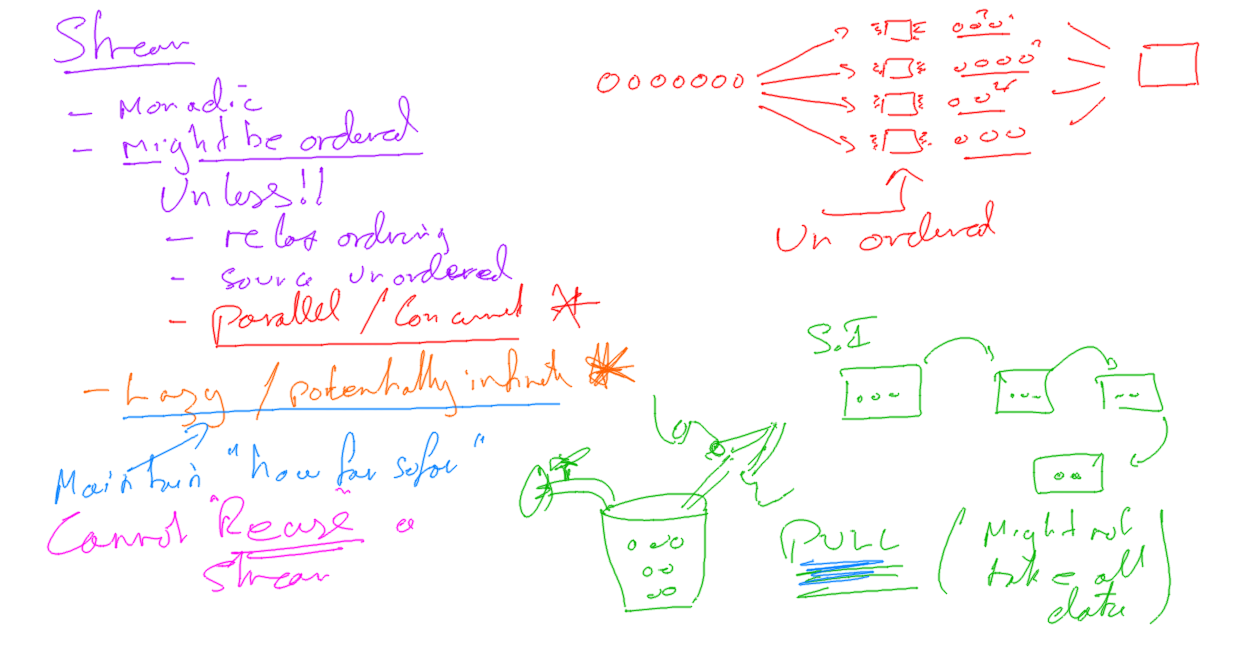 Stream
- Monadic
- Might be ordered
Unless!!
- relax ordering
- source unordered
- Parallel / Concurrent
- Lazy / potentially infinite
Maintain "how far so far"
Cannot "Reuse" a
Stream
Un ordered
S.I
PULL
(Might not
take all
data)